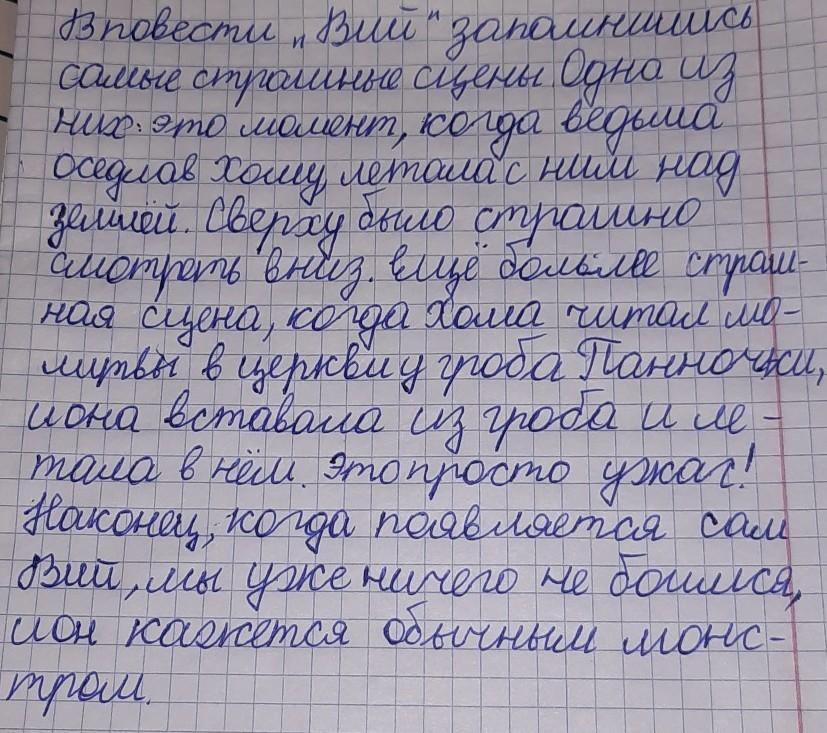 В повести „Вий" запомнились
самые страшные сцены. Одна из
них: это момент, когда ведьма
оседлав Хому, летала с ним над
землёй. Сверху было страшно
смотреть вниз. Ещё более страш-
ная сцена, когда Хома читал мо-
литвы в церкви у гроба Панночки,
и она вставала из гроба и ле-
тала в нём. Это просто ужас!
Наконец, когда появляется сам
Вий, мы уже ничего не боимся,
и он кажется обычным монс-
тром.